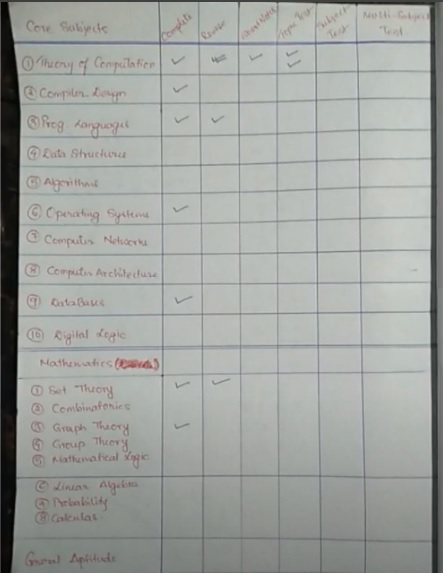 Core Subjects Complete Revise Topic Test Subject Test Multi-Subject Test
① Theory of Computation ✓ ✓ ✓ ✓
② Compiler Design ✓
③ Prog Languages ✓ ✓
④ Data Structures
⑤ Algorithms
⑥ Operating Systems ✓
⑦ Computer Networks
⑧ Computer Architecture
⑨ DataBases ✓
⑩ Digital Logic
Mathematics
① Set Theory ✓ ✓
② Combinatorics
③ Graph Theory ✓
④ Group Theory
⑤ Mathematical Logic
⑥ Linear Algebra
⑦ Probability
⑧ Calculas
General Aptitude